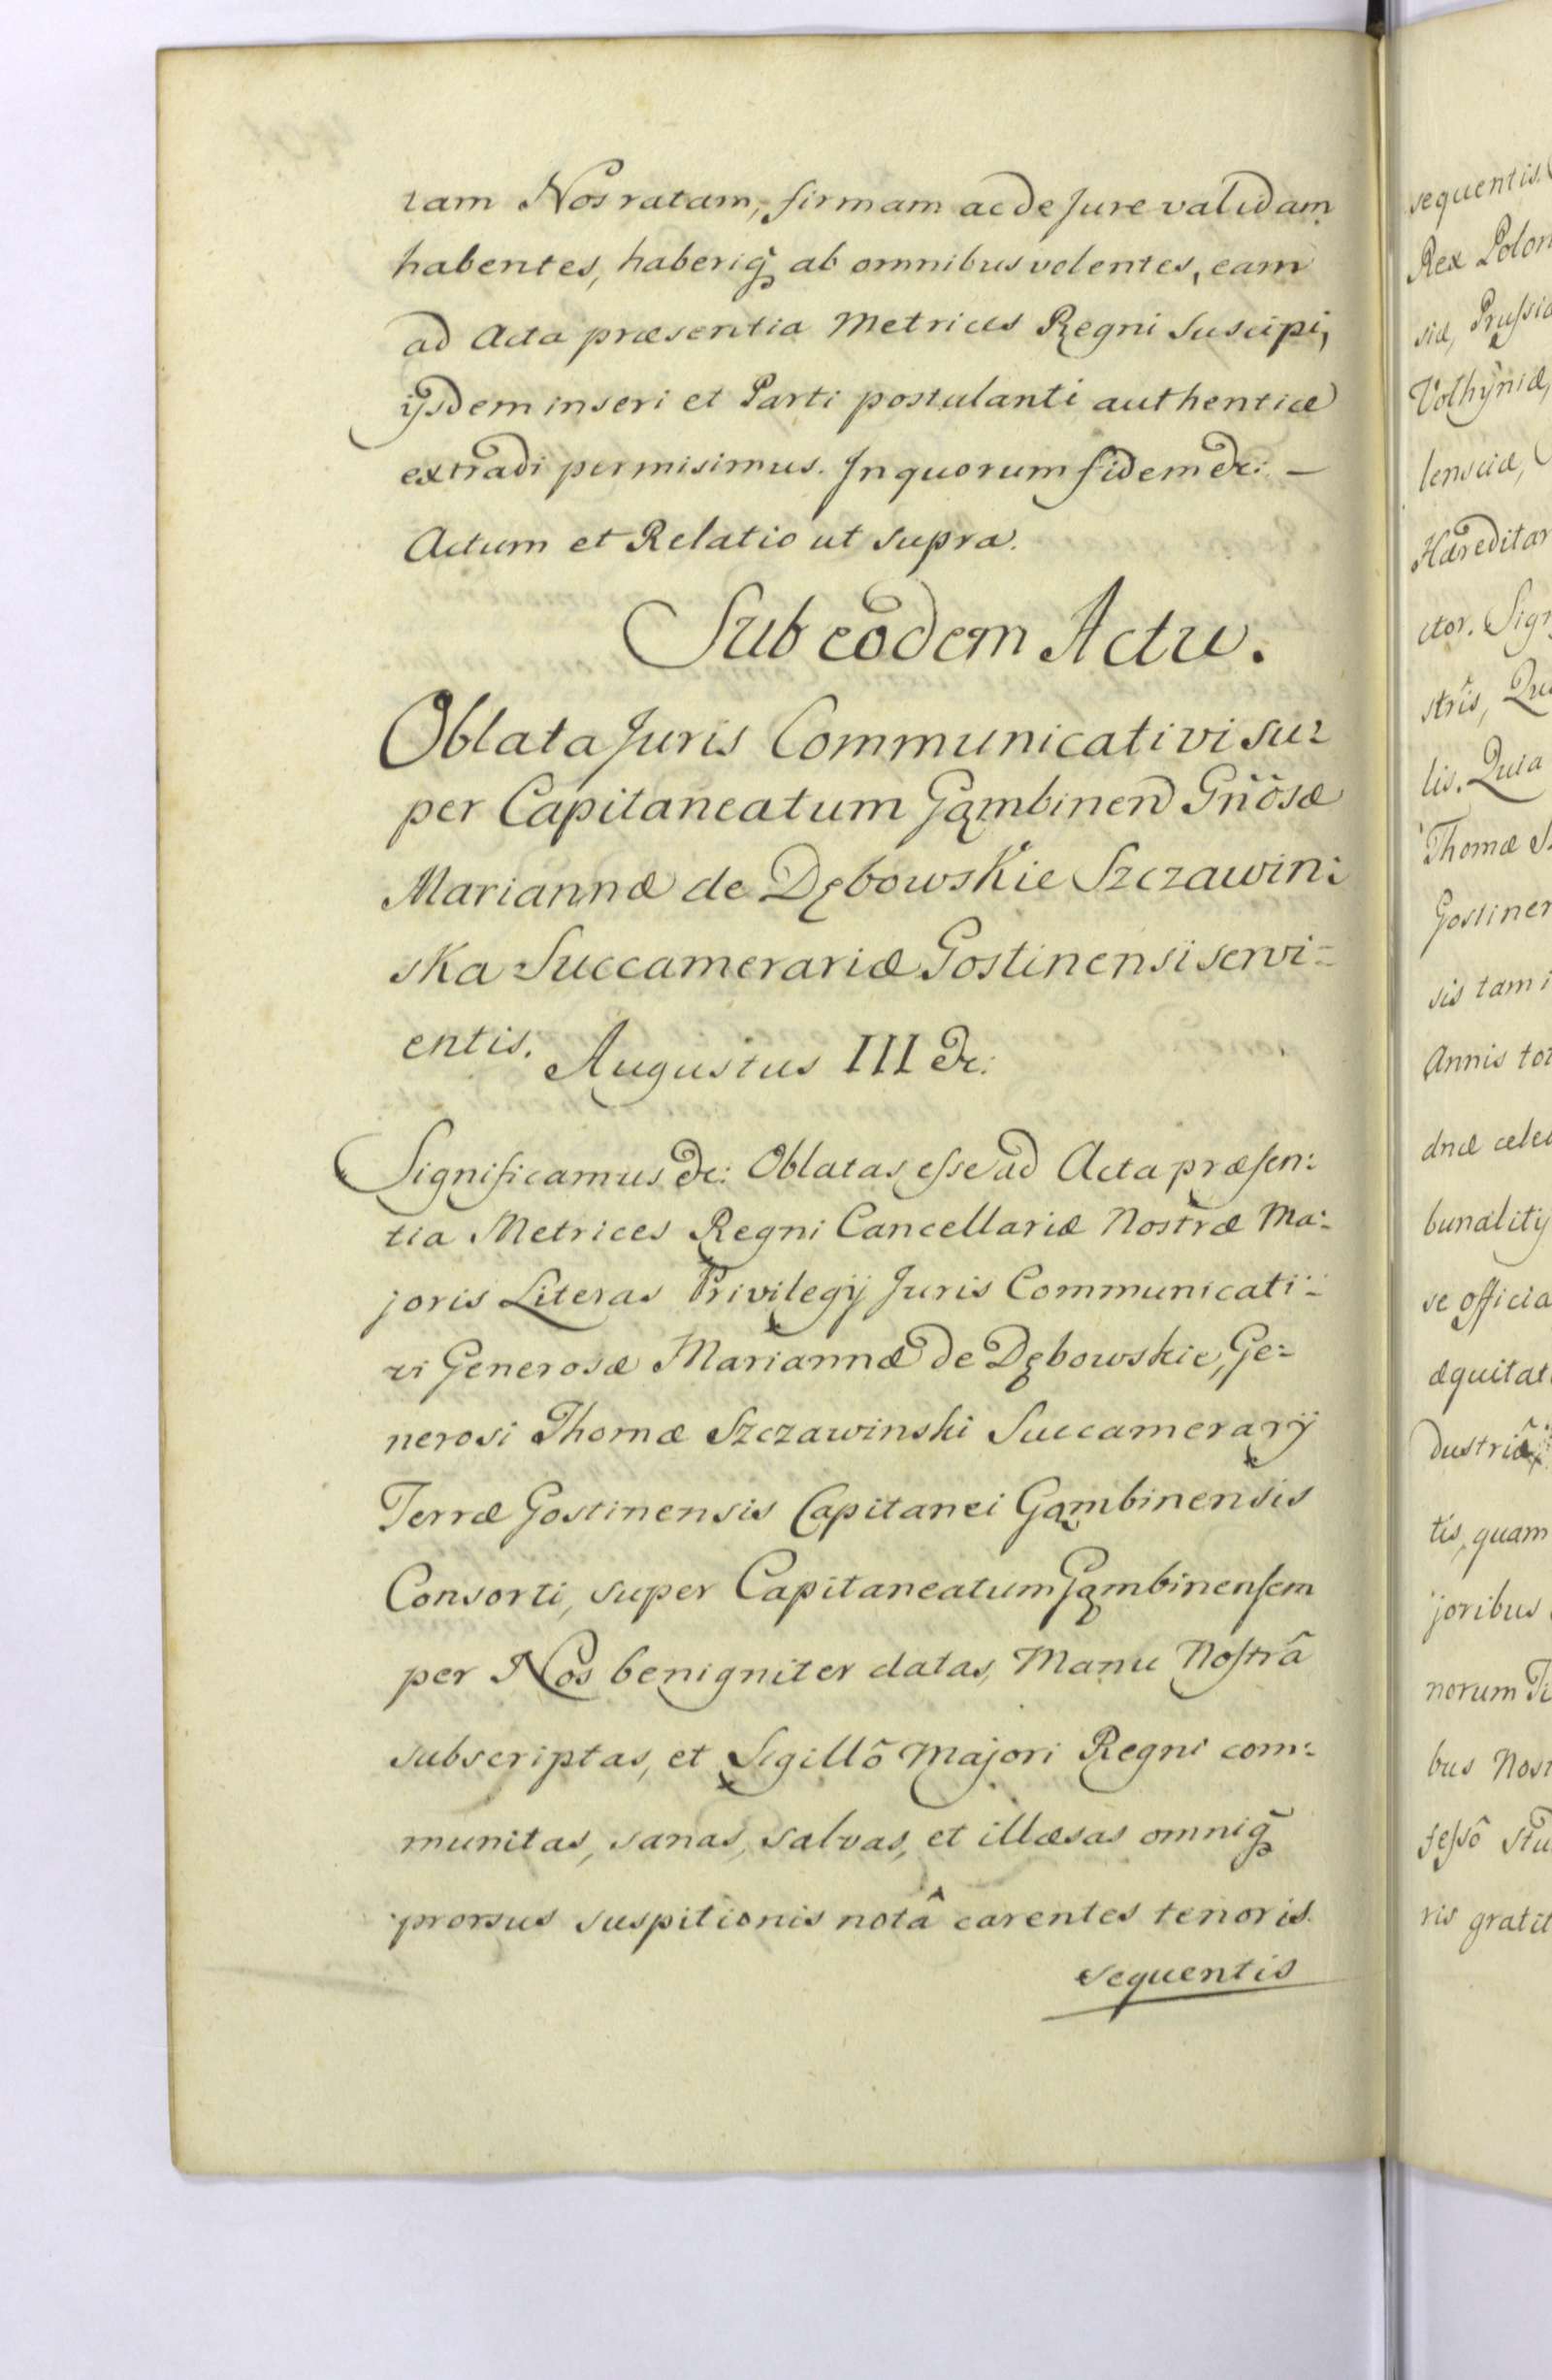 tam Nos ratam, firmam ac de Jure validam
habentes, haberiq̃ ab omnibus volentes, eam
ad Acta præsentia Metrices Regni Suscipi,
ijsdem inseri et Parti postulanti authentice
extradi permisimus. In quorum fidem &c: —
Actum et Relatio ut supra.
Sub eodem Actu.
Oblata Juris Communicativi su-
per Capitaneatum Gąmbinen Gñosæ
Mariannæ de Dębowskie Szczawin:
ska Succamerariæ Gostinensi servi=
entis.
Augustus III &c:
Significamus &c: Oblatas eſse ad Acta præſen:
tia Metrices Regni Cancellariæ Nostræ Ma:
joris Literas Privilegij Juris Communicati:
vi Generosæ Mariannæ de Dębowskie, Ge=
nerosi Thomæ Szczawinski Succamerarij
Terræ Gostinensis Capitanei Gąmbinensis
Consorti, super Capitaneatum Gąmbinenſem
per Nos benigniter datas, Manu Noſtrâ
subscriptas, et Sigillô Majori Regni com:
munitas, sanas, salvas, et illæsas omniq̃
prorsus suspitionis notâ carentes tenoris
sequentis
sequentis
Rex Polon
siæ, Pruſsiæ
Volhÿniæ,
lensciæ,
Hæreditar
ctor. Sign
stris, Qu
lis. Quia
Thomæ S
Gostinen
sis tam i
Annis tot
dnæ cele
bunality
se officia
æquitat
dustriâ
tis, quam
joribus
norum Ti
bus Nost
feſsô Stu
ris gratit